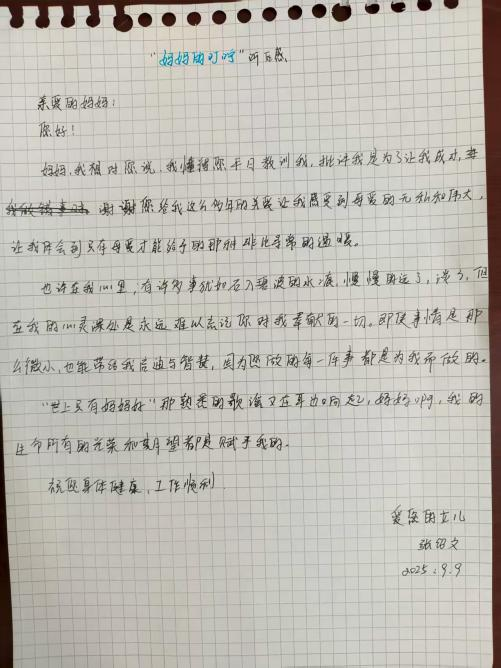 "妈妈的叮咛"听后感
亲爱的妈妈：
您好！
妈妈，我想对您说，我懂得您平日教训我，批评我是为了让我成才，
谢谢您给我这么多年的关爱让我感受到母爱的无私和伟大，
让我体会到只有母爱才能给予的那种非比寻常的温暖。
也许在我心里，有许多事犹如石入碧波的水底，慢慢的远了，淡了，但
在我的心灵深处是永远难以忘记你对我奉献的一切。即使事情是那
么微小，也能带给我启迪与智慧，因为您做的每一件事都是为我而做的。
"世上只有妈妈好"那熟悉的歌谣又在耳边响起，妈妈，我的
生命所有的光荣和期望都是赋予我的。
祝您身体健康，工作顺利
爱您的女儿
张绍文
2025.9.9